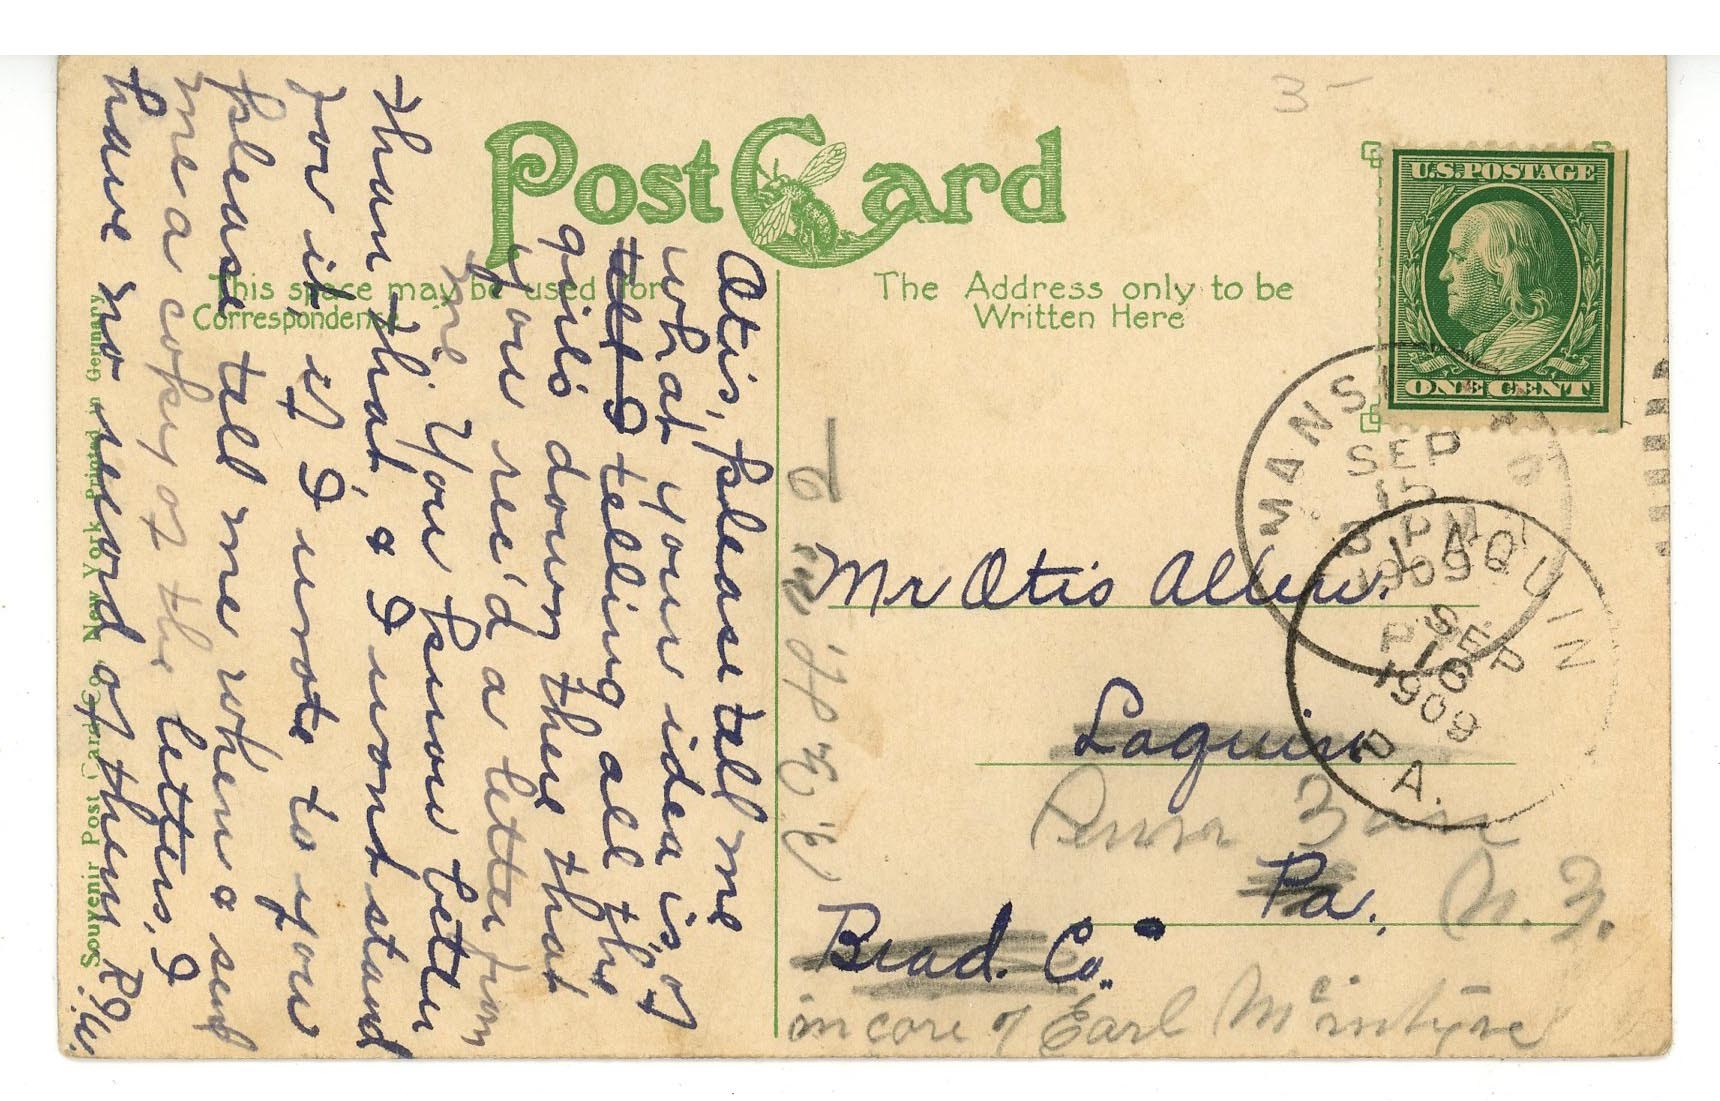 3-
Post Card
This space may be used for
Correspondence
The Address only to be
Written Here
U.S. POSTAGE
ONE CENT
MANS
SEP
15
3-PM
1909
PA
LAQUIN
SEP
16
1909
PA.
Otis, please tell me
what your idea is of
tell I telling all the
girls down there that
you rec'd a letter from
me. You know better
than that, & I wont stand
for it if I wrote to you
please tell me when & send
me a copy of the letters, I
have no record of them R.J.W.
Mr Otis Allen.
Laquin
Penn Yan
Pa.
N. Y.
Brad. Co.
in care of Earl McIntyre
Souvenir Post Card Co. New York Printed in Germany